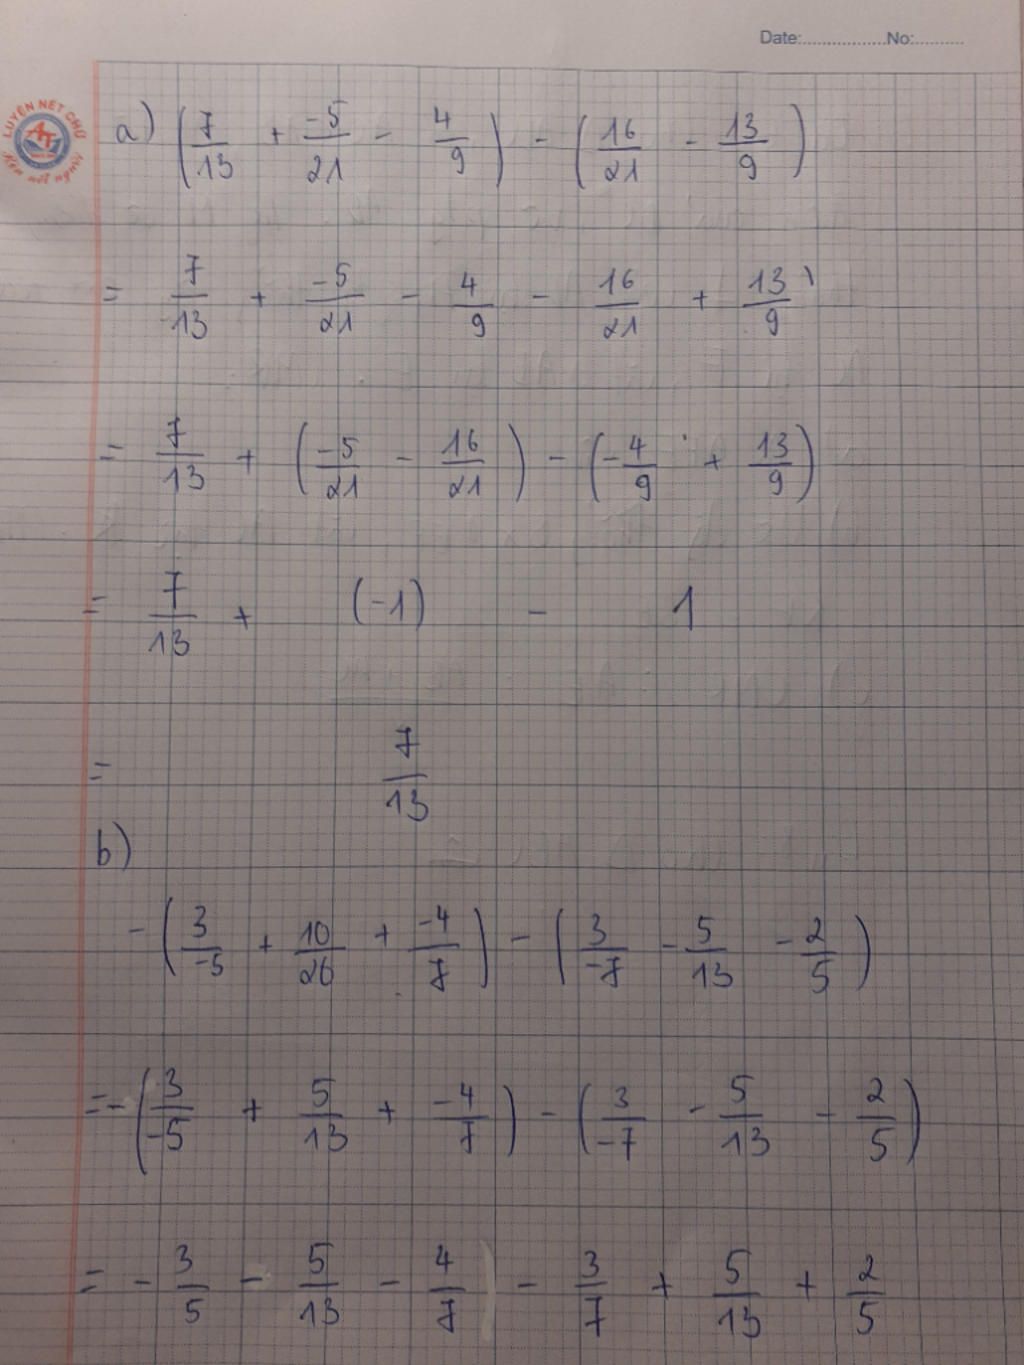 Date:................No:..........
LUYỆN NÉT CHỮ
Rèn nết người
a) (7/13 + -5/21 - 4/9) - (16/21 - 13/9)
= 7/13 + -5/21 - 4/9 - 16/21 + 13/9
= 7/13 + (-5/21 - 16/21) - (-4/9 + 13/9)
= 7/13 + (-1) - 1
= 7/13
b)
-(3/-5 + 10/26 + -4/7) - (3/-7 - 5/13 - 2/5)
= -(3/-5 + 5/13 + -4/7) - (3/-7 - 5/13 - 2/5)
= - 3/5 - 5/13 - 4/7 - 3/7 + 5/13 + 2/5